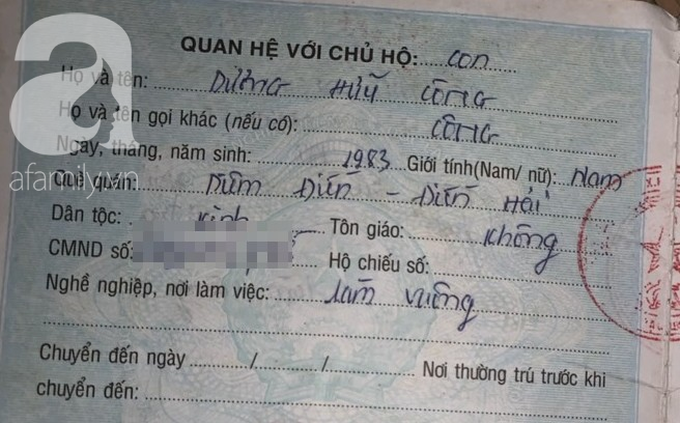 QUAN HỆ VỚI CHỦ HỘ: con
Họ và tên: Dương Hữu Công
Họ và tên gọi khác (nếu có): Công
Ngày, tháng, năm sinh: 1983 Giới tính(Nam/ nữ): Nam
Quê quán: Diễn - Diễn Hải
Dân tộc: Kinh Tôn giáo: Không
CMND số: Hộ chiếu số:
Nghề nghiệp, nơi làm việc: Làm ruộng
Chuyển đến ngày / / Nơi thường trú trước khi
chuyển đến:
a
afamily.vn